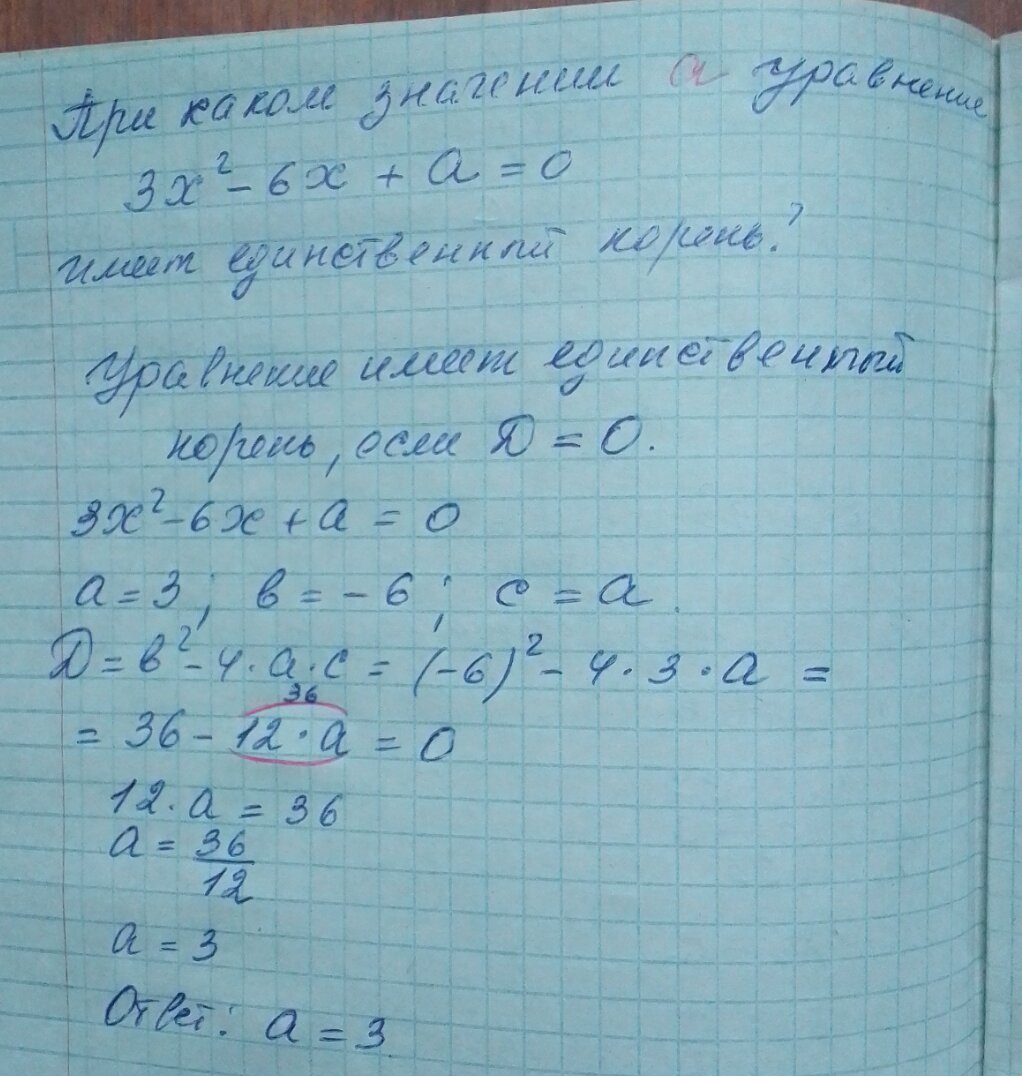 При каком значении a уравнение
3x² - 6x + a = 0
имеет единственный корень?
Уравнение имеет единственный
корень, если D = 0.
3x² - 6x + a = 0
a = 3; в = - 6; c = a.
D = в² - 4 · a · c = (-6)² - 4 · 3 · a =
36
= 36 - 12 · a = 0
12 · a = 36
a = 36/12
a = 3
Ответ: a = 3